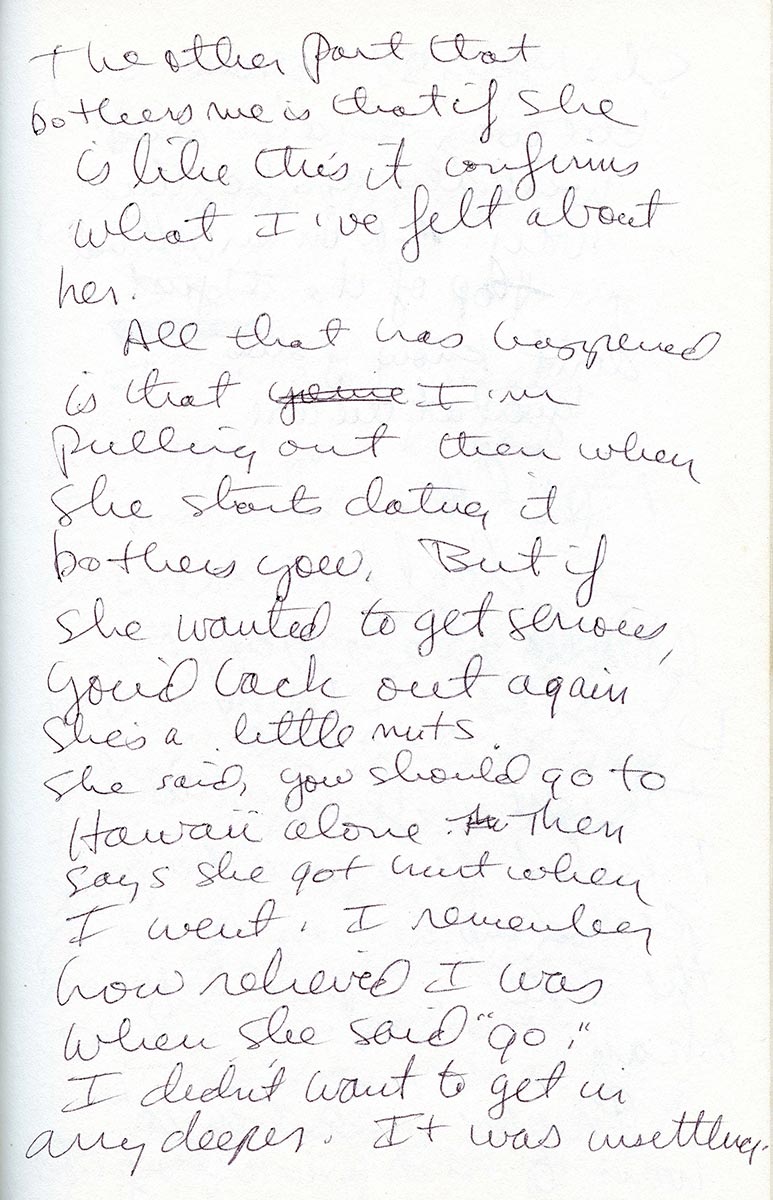 The other part that
bothers me is that if she
is like this it confirms
what I've felt about
her.
All that has happened
is that I'm
pulling out then when
she starts dating it
bothers you. But if
she wanted to get serious,
you'd back out again
She's a little nuts.
She said, you should go to
Hawaii alone. Then
says she got hurt when
I went. I remember
how relieved I was
when she said "go."
I didn't want to get in
any deeper. It was unsettling.